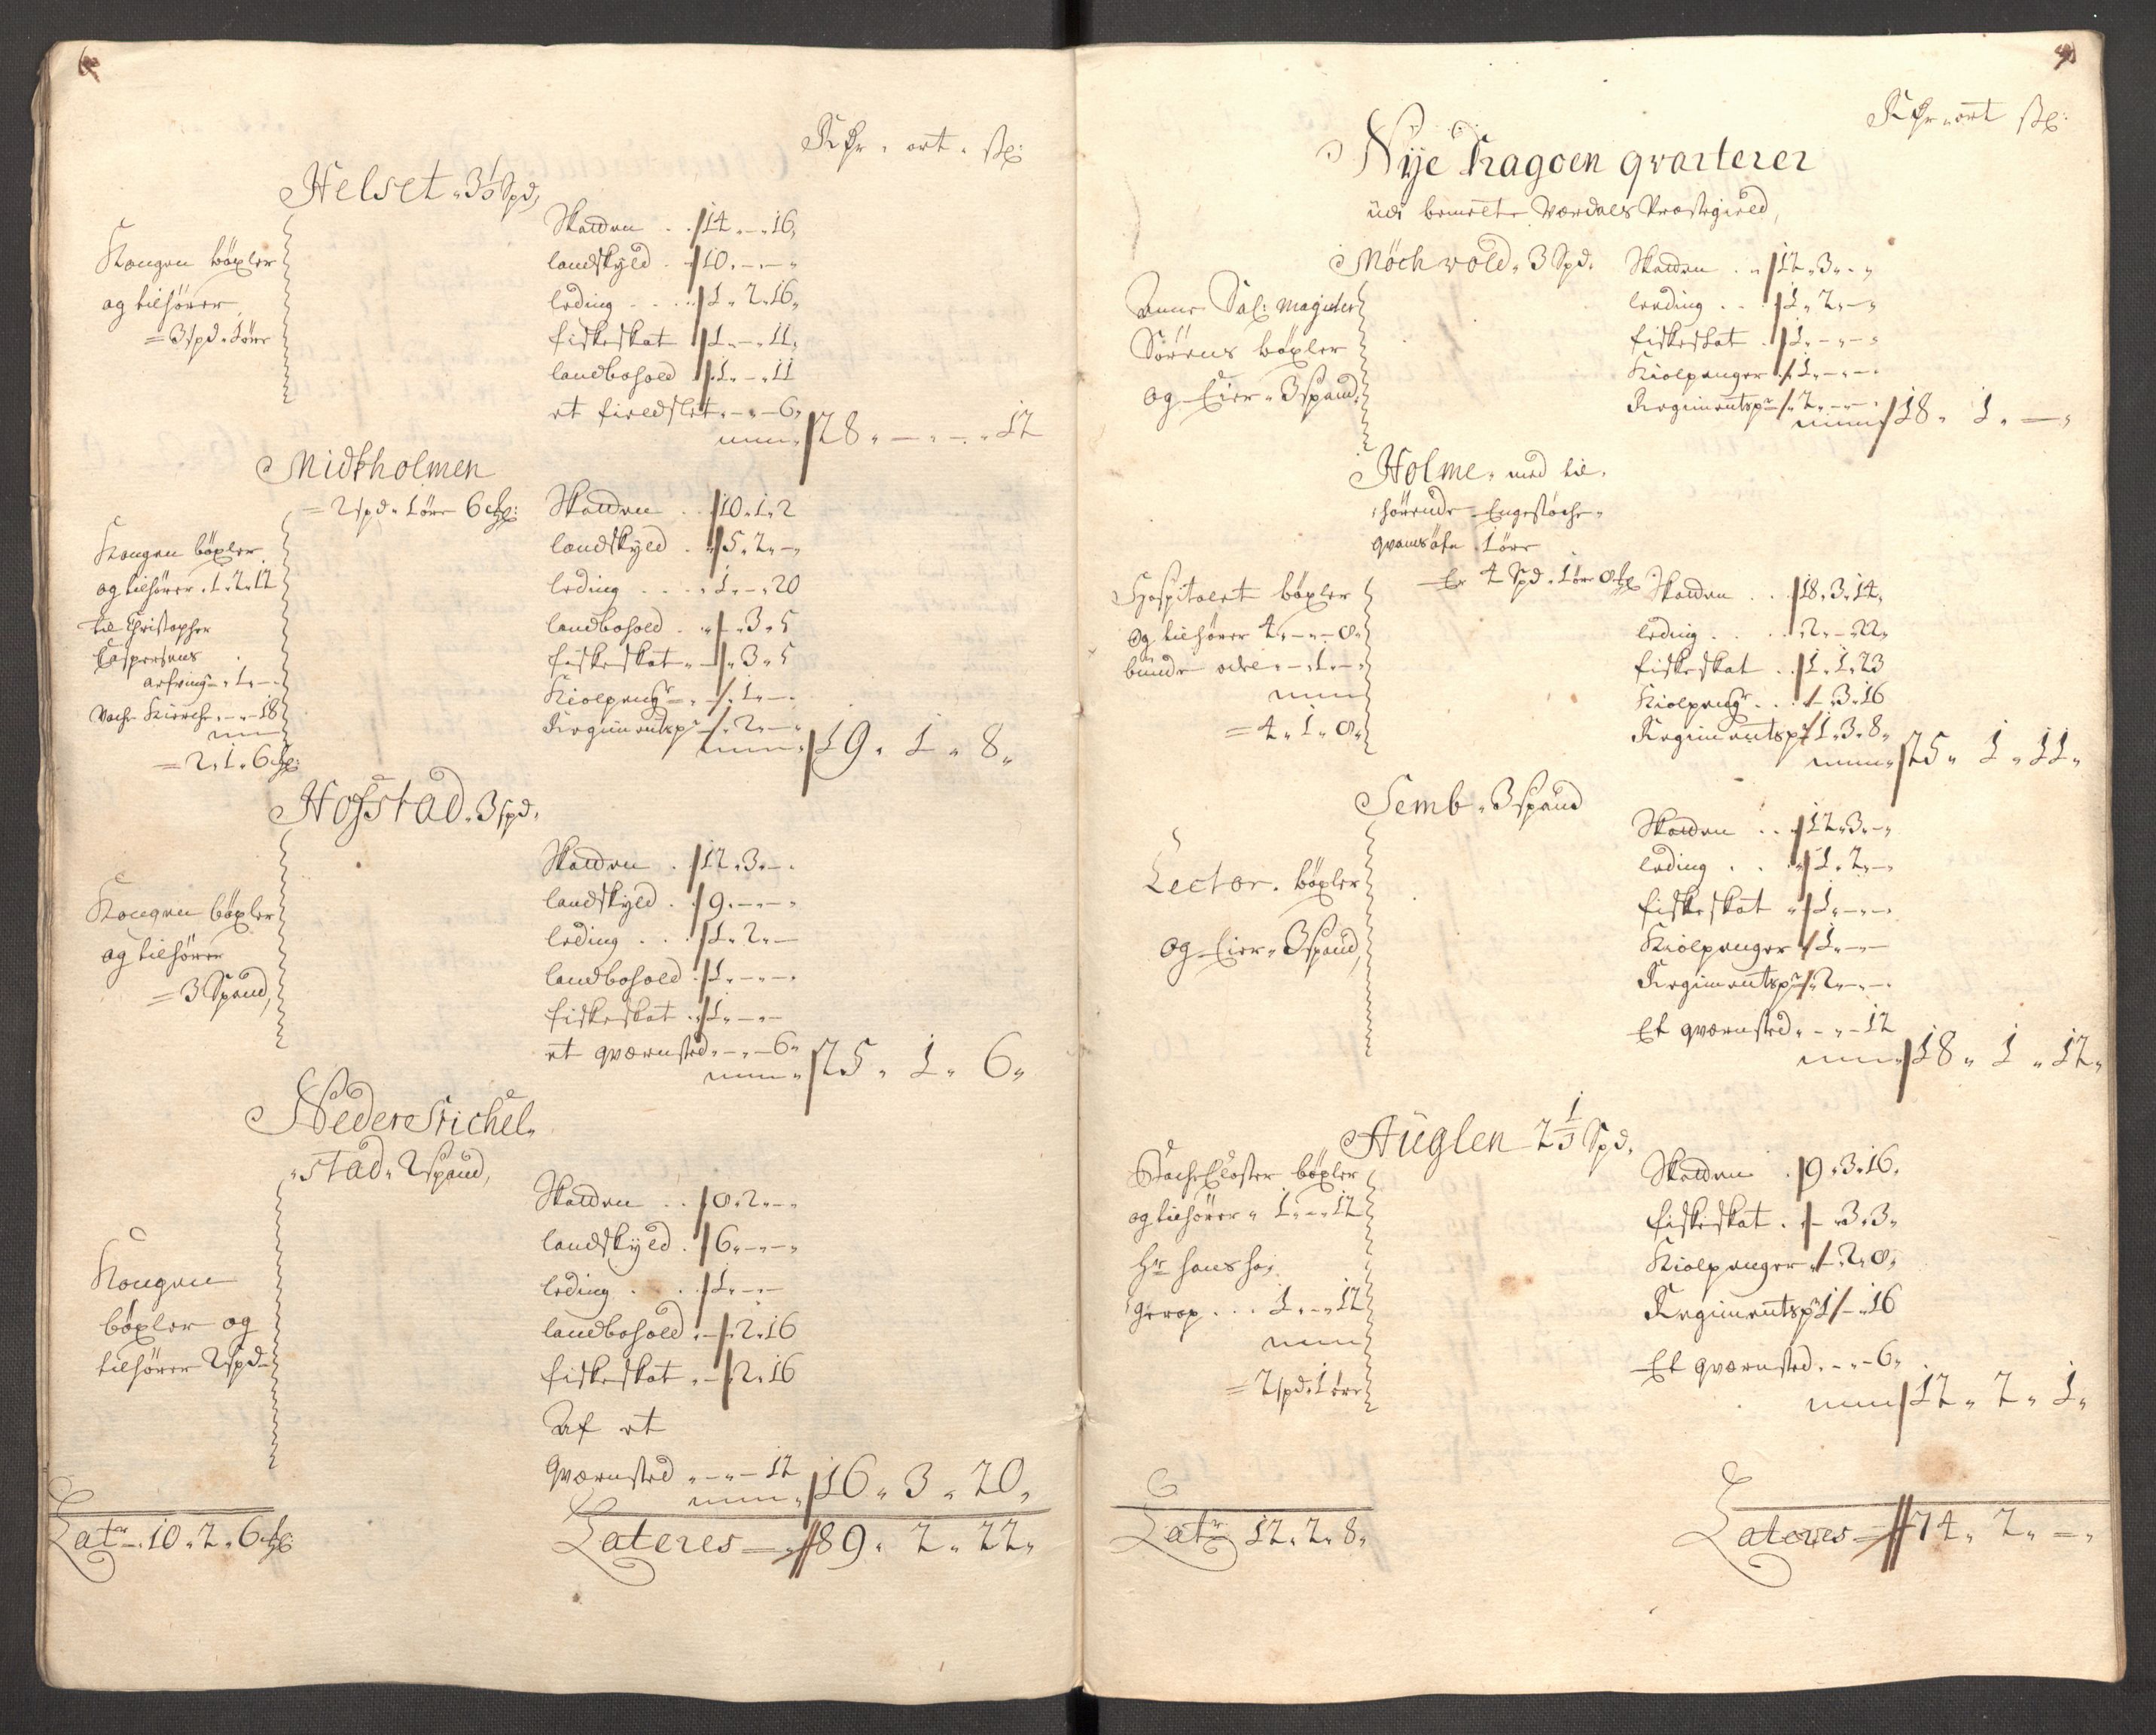 Rdr. ort. sk:
Helset. 3⅓ Spd,
Kongen böxler
og tilhører
= 3 spd. 1 öre
Skatten . . 14 . – . 16,
landskyld . 10. – . –
leding . . . . 1. 2. 16,
fiskeskat 1. – . 11.
landbohold 1. – . 11
et fieldslet. – . – 6,
28. – . – . 12
Midtholmen
= 2 spd. 1 öre 6 sk:
Kongen böxler
og tilhører . 1. 2. 12
til Christopher
Caspersens
arfving . 1. –
Vach Kierche. – . – 18
= 2. 1. 6
Skatten . 10. 1. 2
landskyld . 5. 2. –
leding . . . 1. – . 20
landbohold . – . 3. 5
fiskeskat . – . 3. 5
Kiolpeng – . 1. –
Regimentsp – . 2. –
19. 1. 8.
Hofstad. 3 spd.
Kongen böxler
og tilhører
= 3 Spand,
Skatten . 12. 3. – .
landskyld . 9. – . –
leding . . . 1. 2. –
landbohold . 1. – . –
fiskeskat . 1. – . –
et qværnsted. – . – 6,
25. 1. 6,
Nedere Stichel,
stad. 2 spand,
Kongen
böxler og
tilhører 2 spd
Skatten . . 8. 2. –
landskyld . 6. – . –
leding . . . 1. – . –
landbohold . – . 2. 16
fiskeskat . – . 2. 16
Af et
qværnsted . – . – 12
16. 3. 20,
Latr. 10. 2. 6
Lateres = 89. 2. 22.
Rdr. ort sk:
Nye Dragoen qvarterer
udi bemelte Værdals Præstegield,
Möchvold. 3 Spd.
Anne Sal: Magister
Sörens böxler
og Eier. 3 spand,
Skatten . . 12. 3. –
leeding . . . 1. 2. –
fiskeskat . 1. – . –
Kiolpenger 1. – . –
Regimentsp 2. – . –
18. 1. – .
Holme. med til,
hörende Engeslöche
1 öre
Er 4 Spd. 1 öre 8
Hospitalet böxler
og tilhører 4. – . – 8.
bunde odel. – . 1. –
= 4. 1. 8.
Skatten . . 18. 3. 14,
leding . . . . 2. – . 22,
fiskeskat . 1. 1. 23
Kiolpeng . . 1. 3. 16
Regimentsp 1. 3. 8,
25. 1. 11.
Semb. 3 spand
Lector. böxler
og Eier. 3 spand,
Skatten . . 12. 3. –
leding . . . 1. 2. –
fiskeskat . 1. – . –
Kiolpenger 1. – . –
Regimentsp 2. – . –
Et qværnsted. – . – 12
18. 1. 12.
Auglen 2⅓ Spd.
Bache Closter böxler
og tilhører . 1. – . 12
hr hans
. . . 1. – . 12
= 2 spd. 1 öre
Skatten . 9. 3. 16.
fiskeskat . – . 3. 3,
Kiolpenger . – . 2. 8,
Regimentsp 1. – . 16
Et qværnsted. – . – 6,
12. 2. 1.
Latr 12. 2. 8.
Lateres = 74. 2. – .